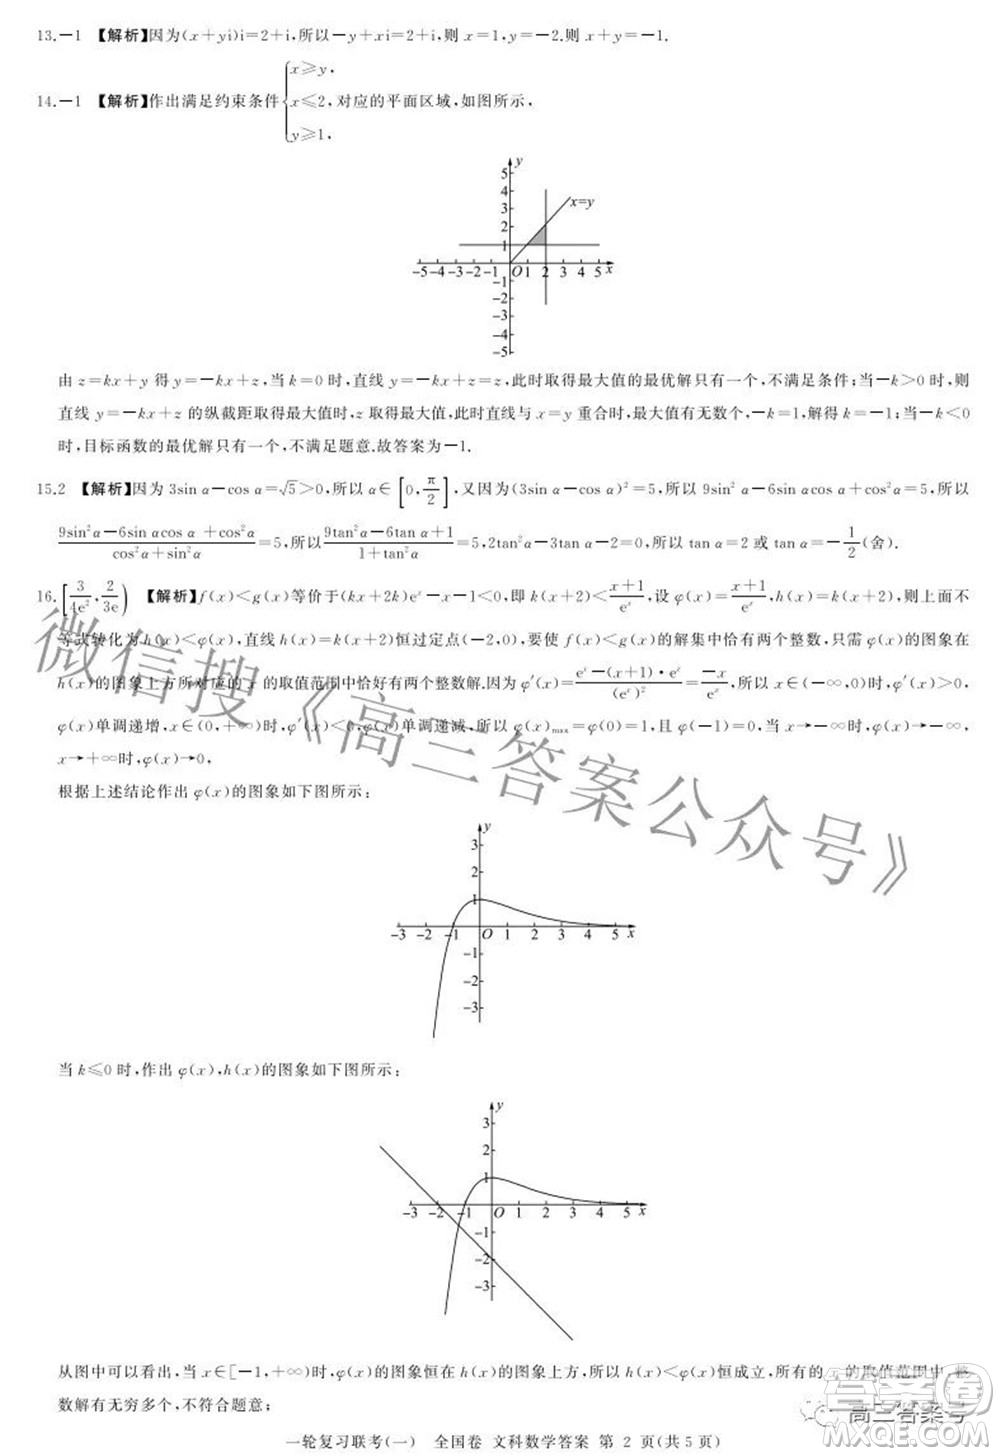 13.−1 【解析】因为(x+yi)i=2+i,所以−y+xi=2+i,则 x=1,y=−2.则 x+y=−1.
14.−1 【解析】作出满足约束条件{x⩾y, x⩽2, y⩾1, 对应的平面区域,如图所示,
y
5
4
3
2
1
x=y
−5 −4 −3 −2 −1 O 1 2 3 4 5 x
−1
−2
−3
−4
−5
由 z=kx+y 得 y=−kx+z,当 k=0 时,直线 y=−kx+z,此时取得最大值的最优解只有一个,不满足条件;当−k>0 时,则
直线 y=−kx+z 的纵截距取得最大值时,z 取得最大值,此时直线与 x=y 重合时,最大值有无数个,−k=1,解得 k=−1;当−k<0
时,目标函数的最优解只有一个,不满足题意.故答案为−1.
15.2 【解析】因为 3sin α−cos α=√5>0,所以 α∈[0,π/2],又因为(3sin α−cos α)²=5,所以 9sin² α−6sin αcos α+cos²α=5,所以
(9sin²α−6sin αcos α +cos²α)/(cos²α+sin²α)=5,所以(9tan²α−6tan α+1)/(1+tan²α)=5,2tan²α−3tan α−2=0,所以 tan α=2 或 tan α=−1/2(舍).
16.[3/4e², 2/3e) 【解析】f(x)<g(x)等价于(kx+2k)eˣ−x−1<0,即 k(x+2)<(x+1)/eˣ,设 φ(x)=(x+1)/eˣ,h(x)=k(x+2),则上面不
等式转化为 h(x)<φ(x),直线 h(x)=k(x+2)恒过定点(−2,0),要使 f(x)<g(x)的解集中恰有两个整数,只需 φ(x)的图象在
h(x)的图象上方所对应的 x 的取值范围中恰好有两个整数解.因为 φ′(x)=(eˣ−(x+1)·eˣ)/(eˣ)²=−x/eˣ,所以 x∈(−∞,0)时,φ′(x)>0,
φ(x)单调递增,x∈(0,+∞)时,φ′(x)<0,φ(x)单调递减,所以 φ(x)max=φ(0)=1,且 φ(−1)=0,当 x→−∞时,φ(x)→−∞,
x→+∞时,φ(x)→0,
根据上述结论作出 φ(x)的图象如下图所示:
y
3
2
1
−3 −2 −1 O 1 2 3 4 5 x
−1
−2
−3
当 k⩽0 时,作出 φ(x),h(x)的图象如下图所示:
y
3
2
1
−3 −2 −1 O 1 2 3 4 5 x
−1
−2
−3
从图中可以看出,当 x∈[−1,+∞)时,φ(x)的图象恒在 h(x)的图象上方,所以 h(x)<φ(x)恒成立,所有的 x 的取值范围中,整
数解有无穷多个,不符合题意;
一轮复习联考(一) 全国卷 文科数学答案 第 2 页(共 5 页)
微信搜《高三答案公众号》
高三答案号
答案圈
MXQE.COM